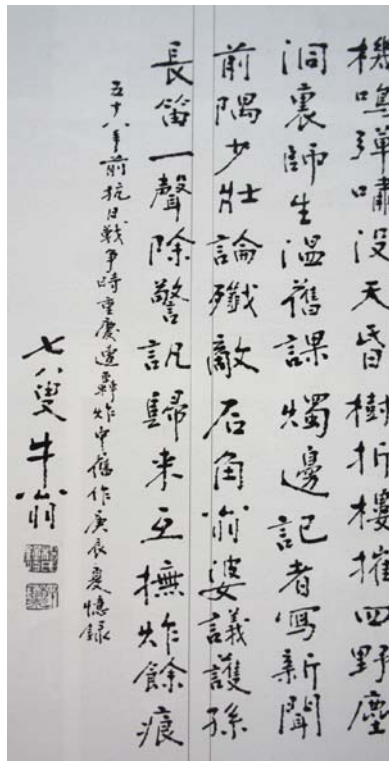 機鳴彈嘯没天昏樹折樓摧四野塵
洞裏師生溫舊課燭邊記者寫新聞
前隅少壯論殲敵石角翁婆議護孫
長笛一聲除警訊歸来互撫炸餘痕
五十八年前抗日戰爭時重慶遭轟炸中舊作庚辰夏憶録
七八叟牛翁